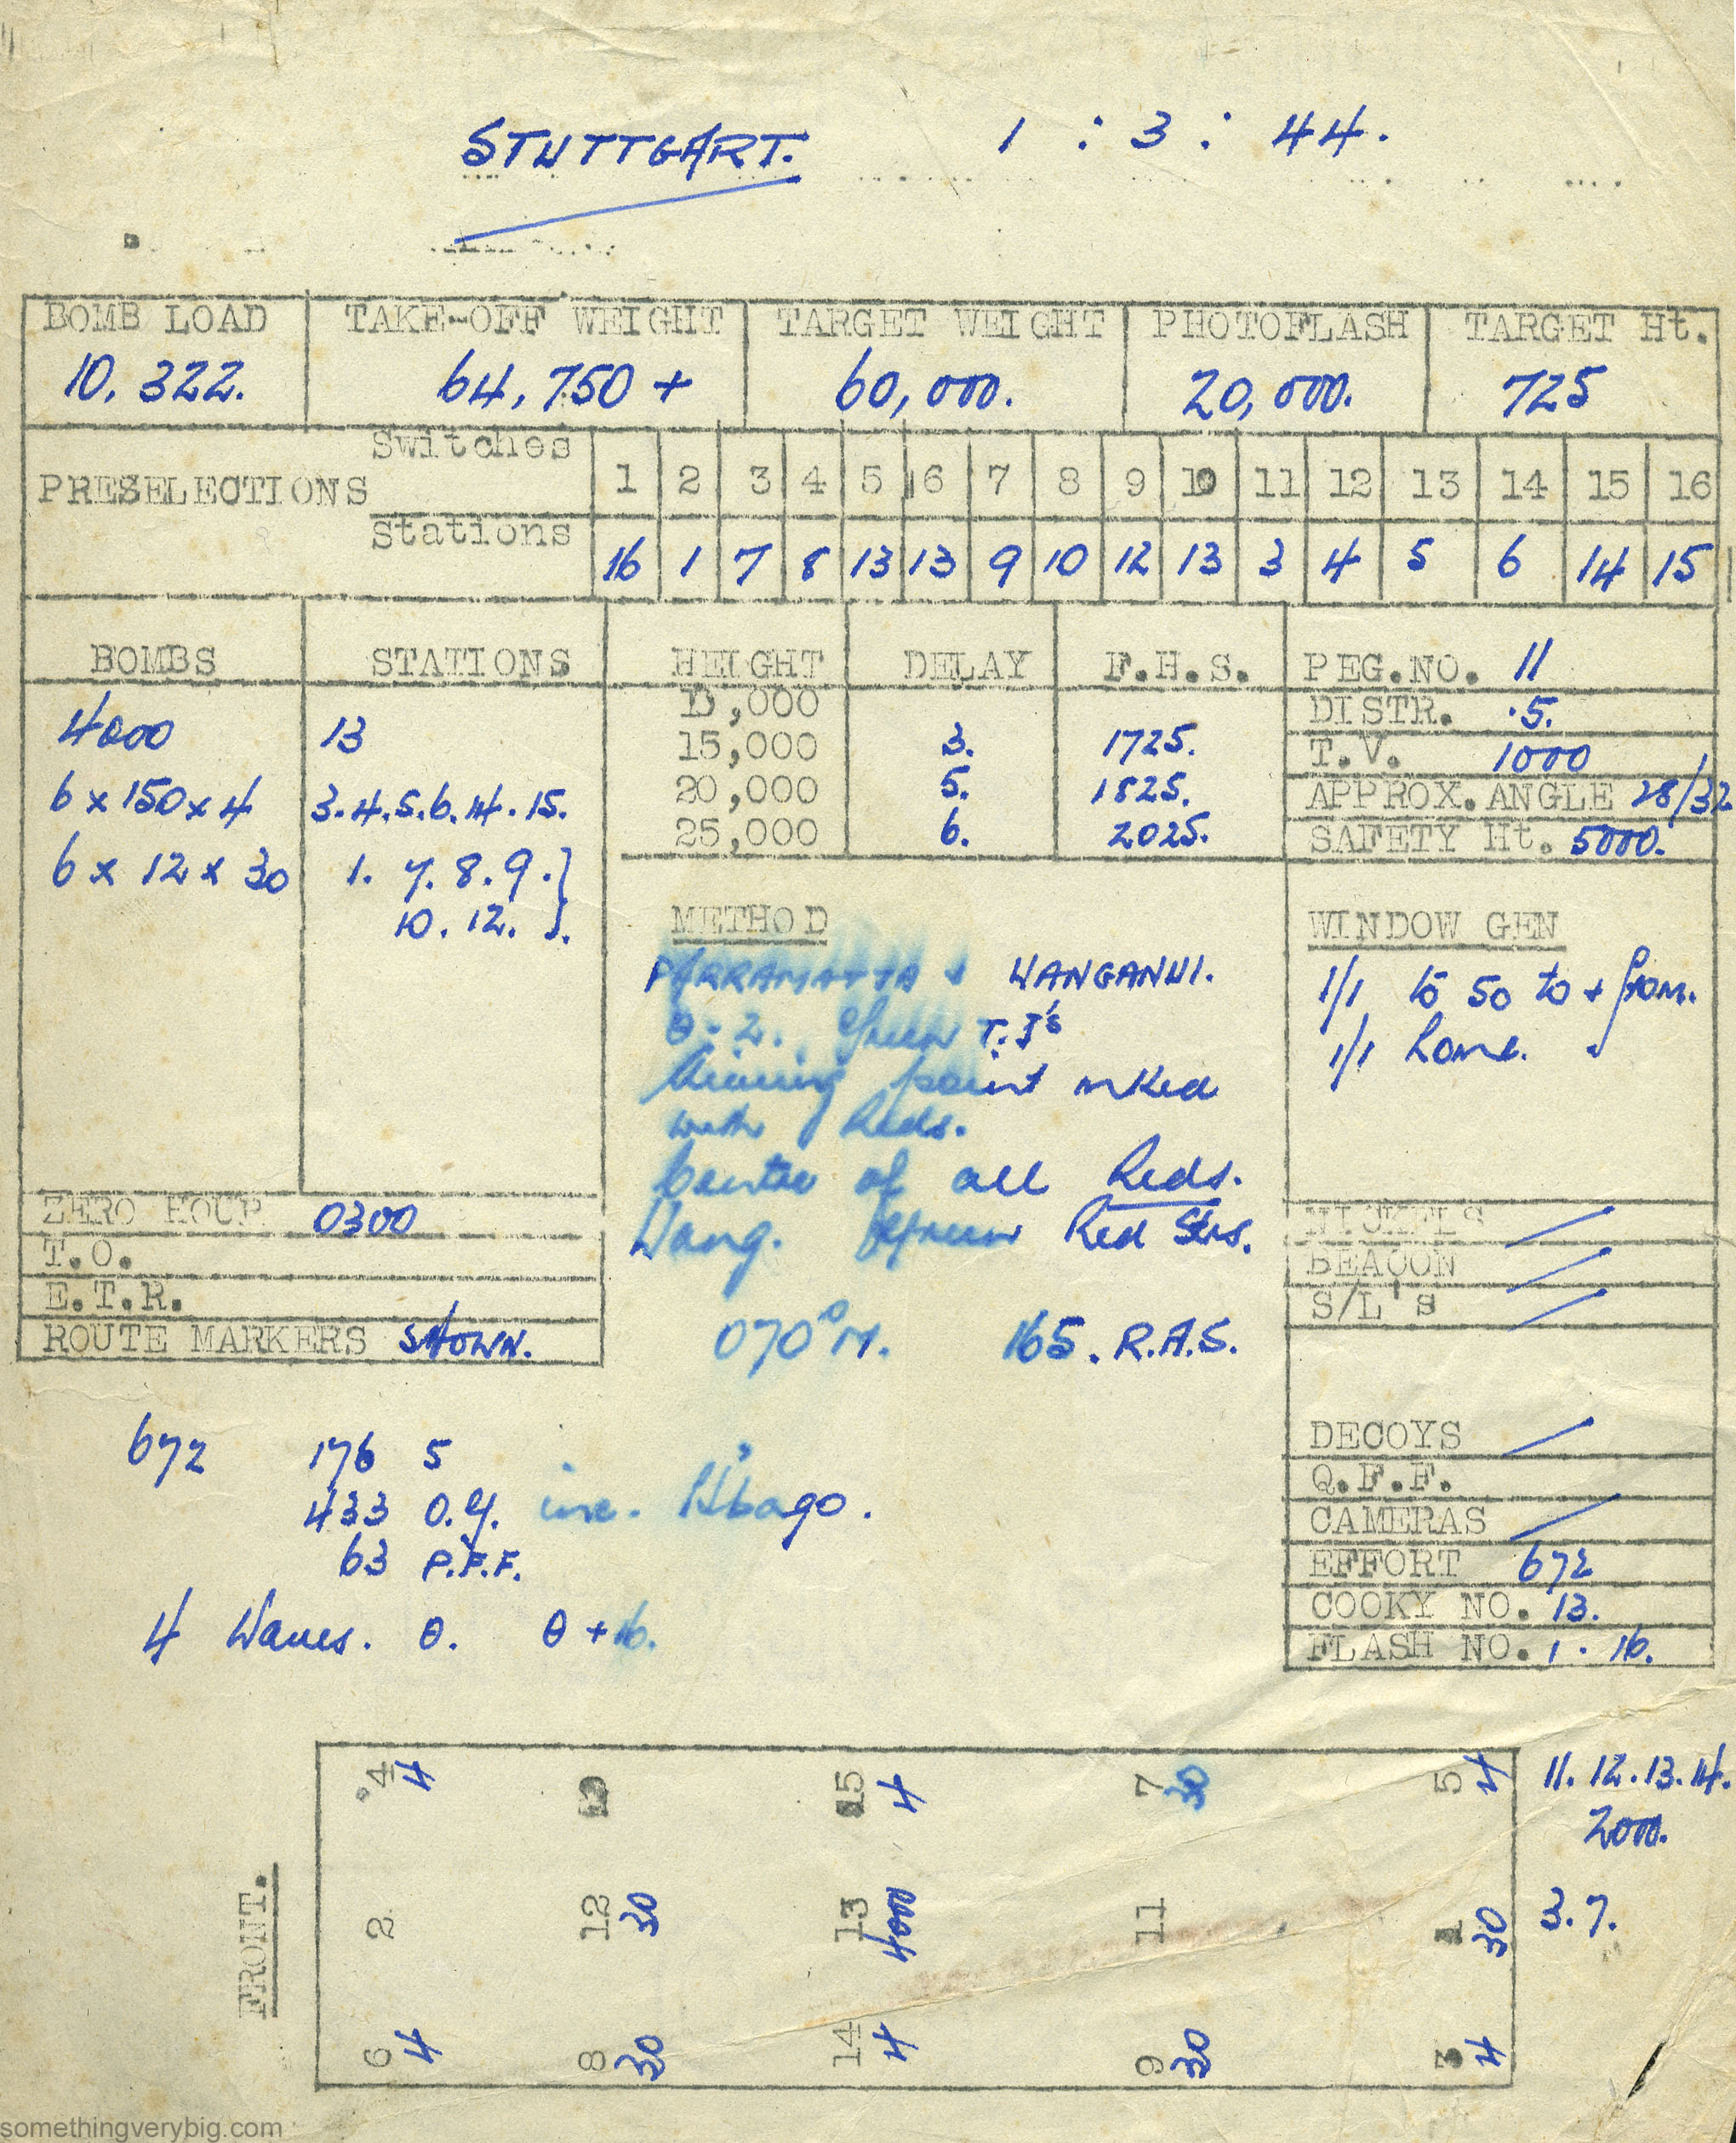 STUTTGART. 1 : 3 : 44.
BOMB LOAD TAKE-OFF WEIGHT TARGET WEIGHT PHOTOFLASH TARGET Ht.
10,322. 64,750 + 60,000. 20,000. 725
PRESELECTIONS
Switches 1 2 3 4 5 6 7 8 9 10 11 12 13 14 15 16
Stations 16 1 7 8 13 13 9 10 12 13 3 4 5 6 14 15
BOMBS STATIONS HEIGHT DELAY F.H.S. PEG.NO. 11
,000 DISTR. .5.
4000 13 15,000 3. 1725. T.V. 1000
6 x 150 x 4 3.4.5.6.14.15. 20,000 5. 1825. APPROX.ANGLE 28/32
25,000 6. 2025. SAFETY Ht. 5000.
6 x 12 x 30 1. 7. 8. 9.}
10. 12. }.
METHOD WINDOW GEN
PARRAMATTA + WANGANUI. 1/1 to 50 to + from.
θ-2. Green T.I's 1/1 home.
Aiming point mked
with Reds.
Centre of all Reds.
Wang. Green Red Strs.
ZERO HOUR 0300 NICKELS /
T.O. BEACON /
E.T.R. S/L's /
ROUTE MARKERS SHOWN. 070°M. 165. R.A.S.
672 176 5 DECOYS /
Q.F.F.
433 O.G. inc. CAMERAS /
63 P.F.F. EFFORT 672
COOKY NO. 13.
4 Waves. θ. θ + 16. FLASH NO. 1. 16.
FRONT.
4 4 15 4 7 30 5 4 11.12.13.14.
2000.
2 12 30 13 4000 11 1 30 3.7.
6 4 8 30 14 4 9 30 3 4
somethingverybig.com